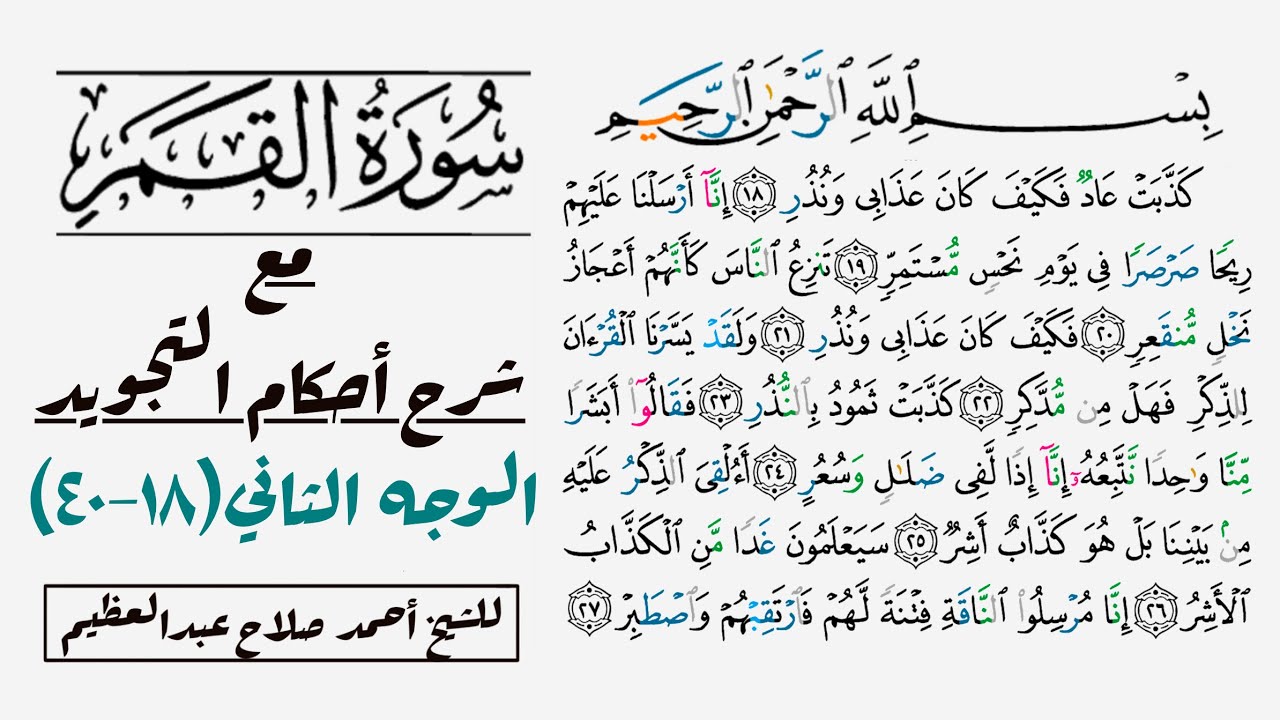 سُورَةُ القَمَرِ
مع
شرح أحكام التجويد
الوجه الثاني (١٨-٤٠)
للشيخ أحمد صلاح عبدالعظيم
بِسْمِ ٱللَّهِ ٱلرَّحْمَٰنِ ٱلرَّحِيمِ
كَذَّبَتْ عَادٌ فَكَيْفَ كَانَ عَذَابِى وَنُذُرِ ۝١٨ إِنَّآ أَرْسَلْنَا عَلَيْهِمْ
رِيحًا صَرْصَرًا فِى يَوْمِ نَحْسٍ مُّسْتَمِرٍّ ۝١٩ تَنزِعُ ٱلنَّاسَ كَأَنَّهُمْ أَعْجَازُ
نَخْلٍ مُّنقَعِرٍ ۝٢٠ فَكَيْفَ كَانَ عَذَابِى وَنُذُرِ ۝٢١ وَلَقَدْ يَسَّرْنَا ٱلْقُرْءَانَ
لِلذِّكْرِ فَهَلْ مِن مُّدَّكِرٍ ۝٢٢ كَذَّبَتْ ثَمُودُ بِٱلنُّذُرِ ۝٢٣ فَقَالُوٓا۟ أَبَشَرًا
مِّنَّا وَٰحِدًا نَّتَّبِعُهُۥٓ إِنَّآ إِذًا لَّفِى ضَلَٰلٍ وَسُعُرٍ ۝٢٤ أَءُلْقِىَ ٱلذِّكْرُ عَلَيْهِ
مِنۢ بَيْنِنَا بَلْ هُوَ كَذَّابٌ أَشِرٌ ۝٢٥ سَيَعْلَمُونَ غَدًا مَّنِ ٱلْكَذَّابُ
ٱلْأَشِرُ ۝٢٦ إِنَّا مُرْسِلُوا۟ ٱلنَّاقَةِ فِتْنَةً لَّهُمْ فَٱرْتَقِبْهُمْ وَٱصْطَبِرْ ۝٢٧